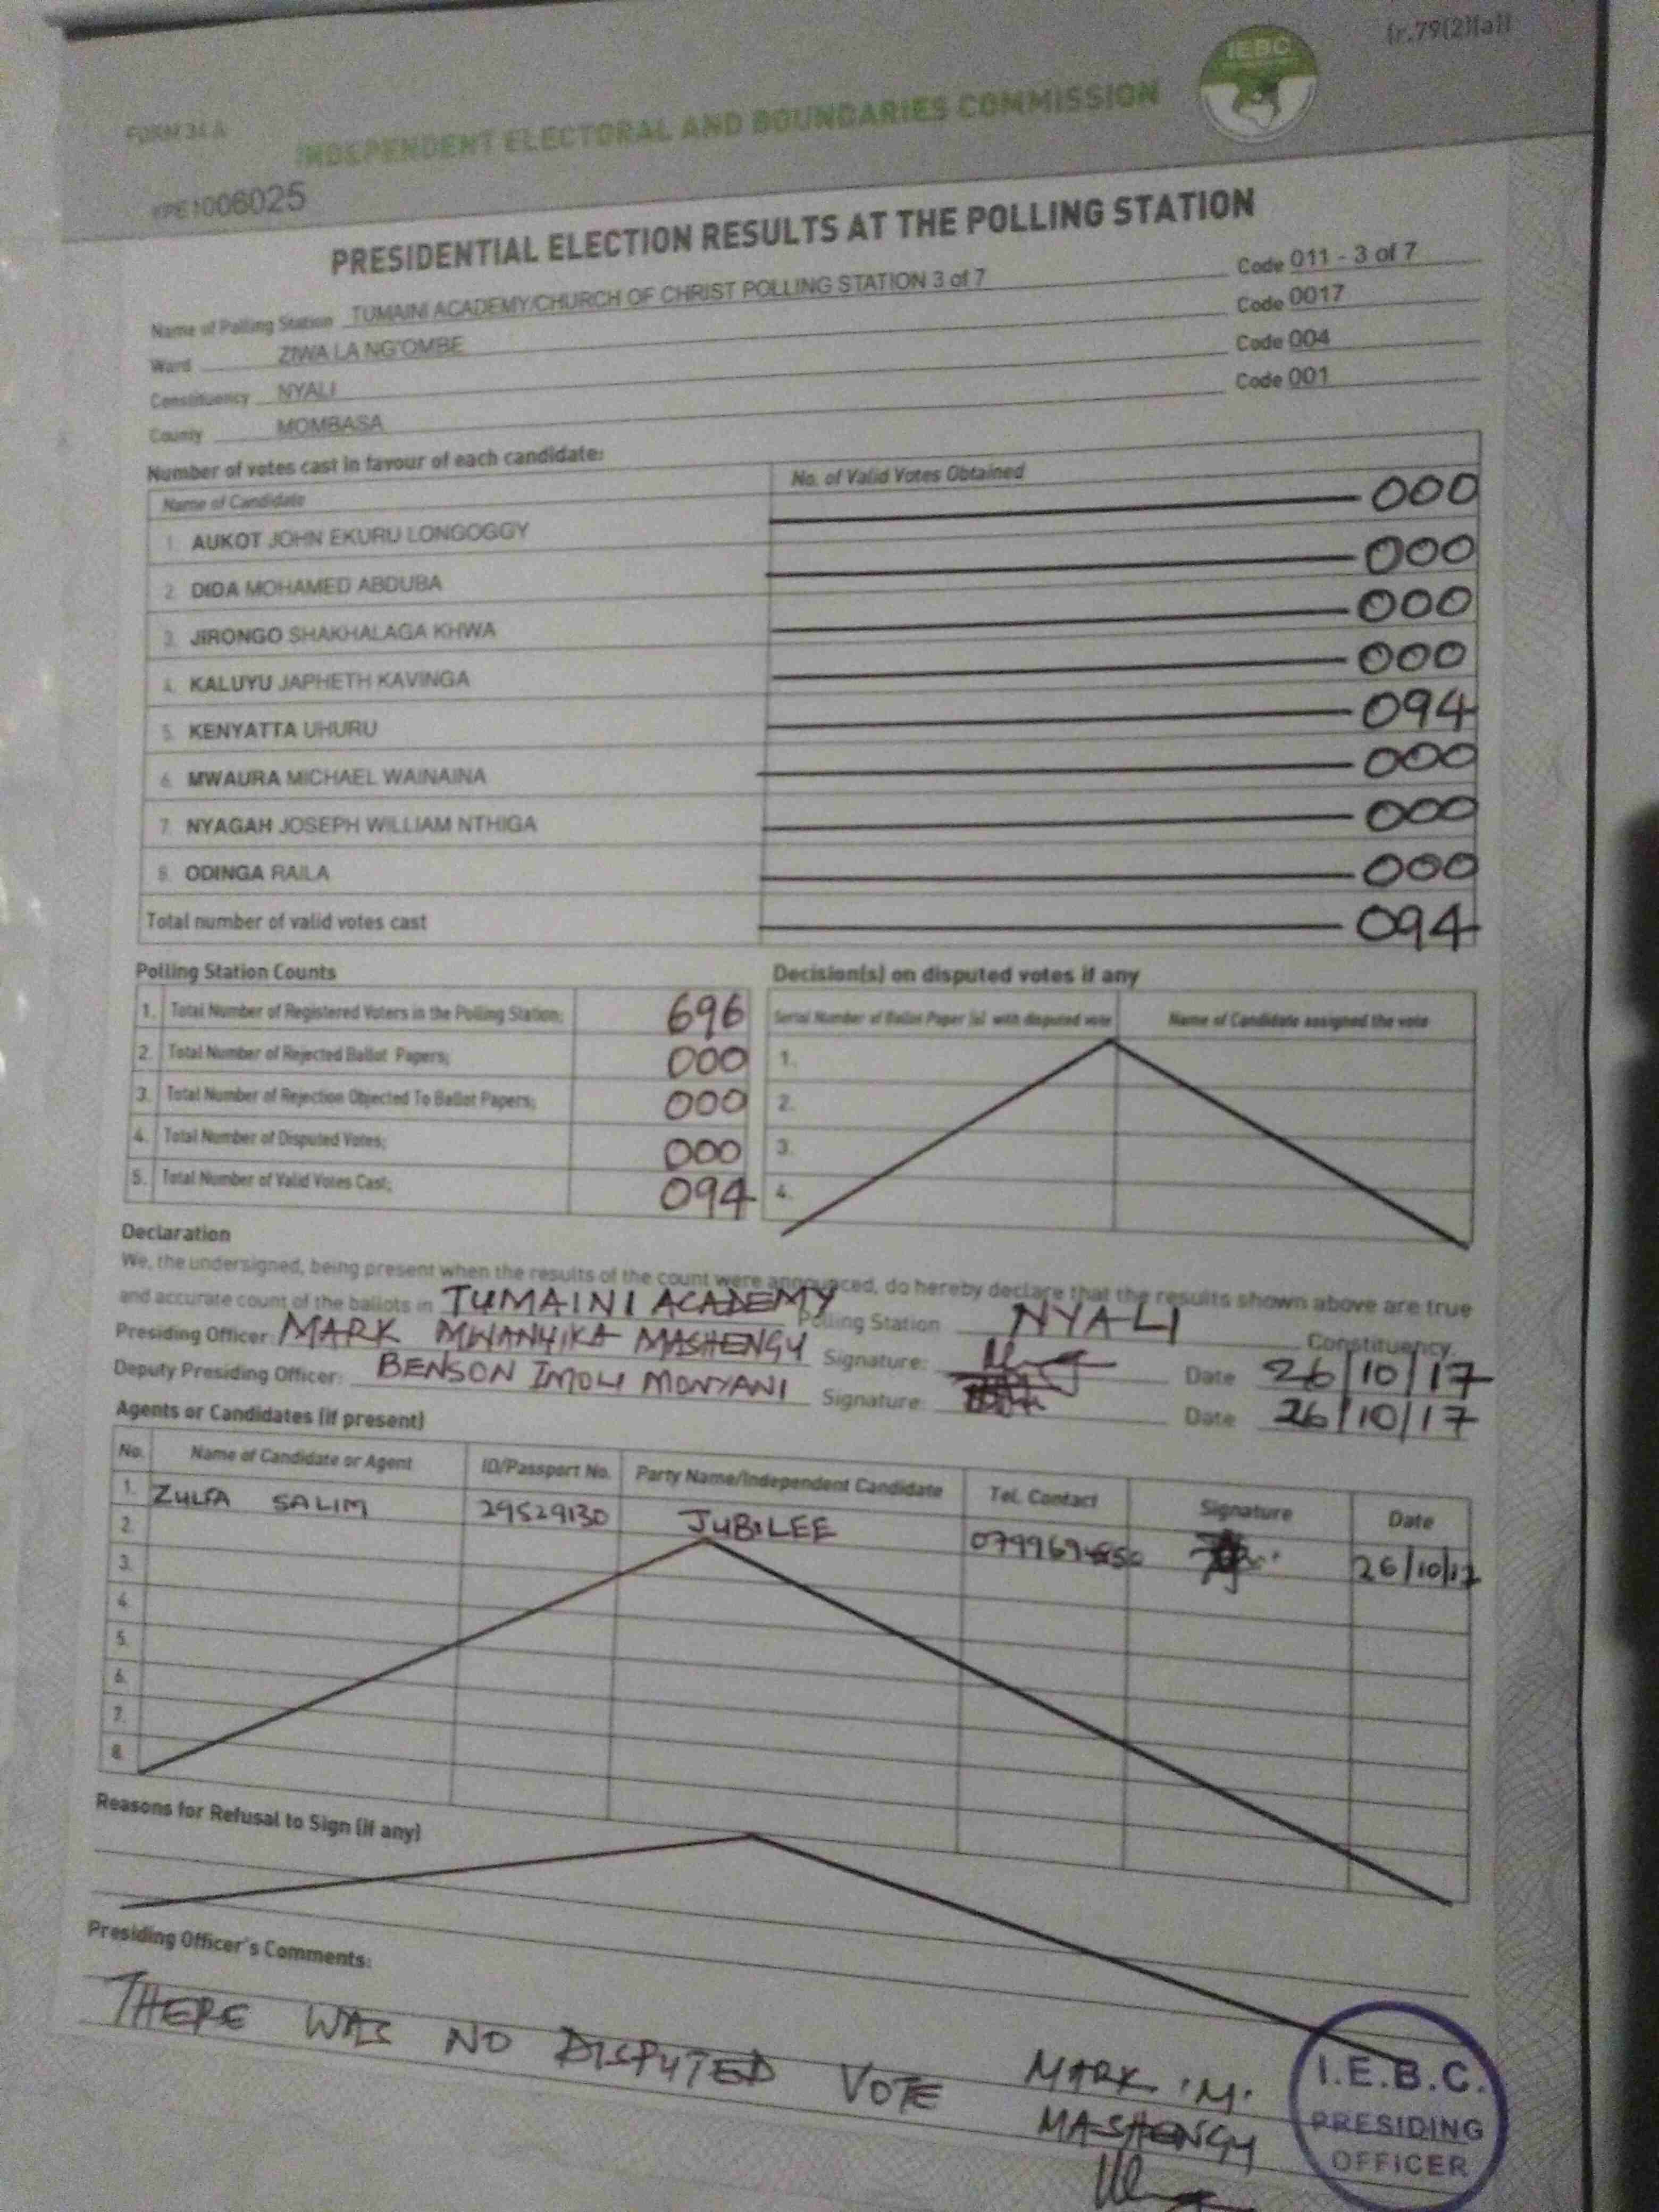 (r.79(2)(a))
IEBC
FORM 34 A
INDEPENDENT ELECTORAL AND BOUNDARIES COMMISSION
1006025
PRESIDENTIAL ELECTION RESULTS AT THE POLLING STATION
Name of Polling Station TUMAINI ACADEMY/CHURCH OF CHRIST POLLING STATION 3 of 7 Code 011 - 3 of 7
Ward ZIWA LA NG'OMBE Code 0017
Constituency NYALI Code 004
County MOMBASA Code 001
Number of votes cast in favour of each candidate:
Name of Candidate No. of Valid Votes Obtained
1. AUKOT JOHN EKURU LONGOGGY 000
2. DIDA MOHAMED ABDUBA 000
3. JIRONGO SHAKHALAGA KHWA 000
4. KALUYU JAPHETH KAVINGA 000
5. KENYATTA UHURU 094
6. MWAURA MICHAEL WAINAINA 000
7. NYAGAH JOSEPH WILLIAM NTHIGA 000
8. ODINGA RAILA 000
Total number of valid votes cast 094
Polling Station Counts
1. Total Number of Registered Voters in the Polling Station; 696
2. Total Number of Rejected Ballot Papers; 000
3. Total Number of Rejection Objected To Ballot Papers; 000
4. Total Number of Disputed Votes; 000
5. Total Number of Valid Votes Cast; 094
Decision(s) on disputed votes if any
Serial Number of Ballot Paper (s) with disputed vote Name of Candidate assigned the vote
1.
2.
3.
4.
Declaration
We, the undersigned, being present when the results of the count were announced, do hereby declare that the results shown above are true
and accurate count of the ballots in TUMAINI ACADEMY Polling Station NYALI Constituency.
Presiding Officer: MARK MWANYIKA MASHENGU Signature: Date 26/10/17
Deputy Presiding Officer: BENSON IMOLI MONYANI Signature: Date 26/10/17
Agents or Candidates (if present)
No. Name of Candidate or Agent ID/Passport No. Party Name/Independent Candidate Tel. Contact Signature Date
1. ZULFA SALIM 29529130 JUBILEE 26/10/17
2.
3.
4.
5.
6.
7.
8.
Reasons for Refusal to Sign (if any)
Presiding Officer's Comments:
THERE WAS NO DISPUTED VOTE MARK .M.
MASHENGU
I.E.B.C.
PRESIDING
OFFICER